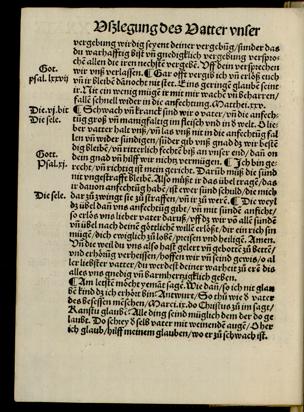 Vßlegung des Vatter vnser
vergebung wir dig seyent deiner vergebūg / sunder das
du warhafftig bist vn̄ gnedigklich vergebung verspro⸗
chē allen die iren nechstē vergebē. Vff dein versprechen
Got. wir vnß verlassen. ¶ Gar offt vergib ich vn̄ erlöß euch
psal. lxxvij vn̄ ir bleibēt nicht stet. Eins geringē glaubē seint
ir. Nit ein wenig mügē ir mit mir wachē vn̄ beharren /
fallē schnell wider in die anfechtung. Matthei. xxv.
Die. vj. bit ¶ Schwach vn̄ kranck sind wir o vater / vn̄ die anfech⸗
Die sele. tūg groß vn̄ mangfaltig im fleisch vnd in ď welt. O lie⸗
ber vatter halt vnß / vn̄ las vnß nit in die anfechtūg fal
len vn̄ wider sündigen / süder gib vnß gnad dz wir bestē
dig bleibē / vn̄ ritterlich fechtē biß an vnser end / dan on
Got. dein gnad vn̄ hilff wir nichtz vermügē. ¶ Ich bin ge⸗
Psal. xj. recht / vn̄ richtig ist mein gericht. Darūb müß die sünd
nit vngestrafft bleibē. Also müßt ir das übel tragē / das
ir dauon anfechtūg habē / ist ewer sünd schuld / die mich
Die sele. dar zū zwingt sie zū straffen / vn̄ ir zū werē. ¶ Die weyl
dz übel dan̄ vns anfechtūg gibt / vn̄ mit sünde anficht /
so erlös vns lieber vater daruß / vff dz wir vō allē sündē
vn̄ übel nach deinē götlichē willē erlößt / dir ein rich sin
mügē / dich ewigklich zū lobē / preisen vnd heiligē. Amen.
Vn̄ die weil du vns also hast gelert vn̄ gebotē zū betē /
vnd erhörūg verheissen / hoffen wir vn̄ seind gewis / o al
ler liebster vatter / du werdest deiner warheit zū erē dis
alles vns gnedig vn̄ barmhertzigklich geben.
¶ Am letstē möcht yemāt sagē. Wie dan̄ / so ich nit glau
bē künd dz ich erhört bin: Antwurt / So thū wie ď vater
des besessen mēschen / Marci. ix. do Christus zū im sagt /
Kanstu glaubē: Alle ding seind müglich dem der ge⸗
laubt. Do schrey ď selb vater mit weinendē augē / O her
ich glaub / hilff meinem glauben / wo er zū schwach ist.